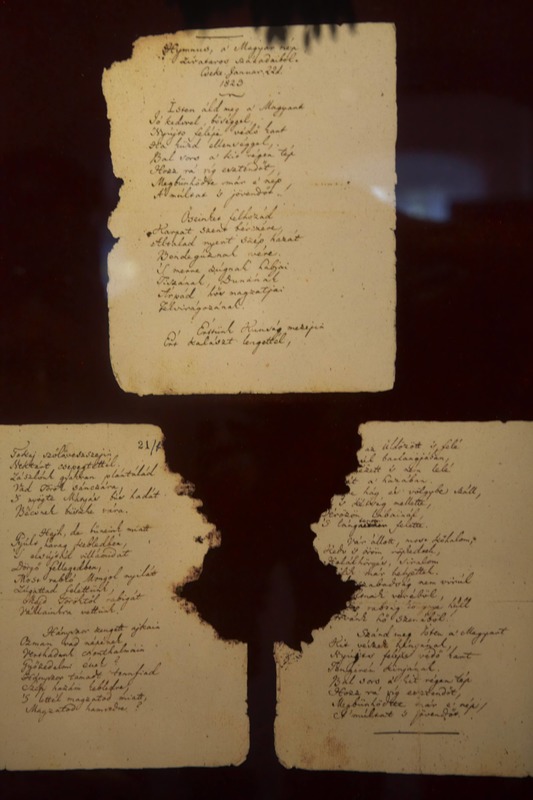 Hymnus, a' Magyar nép
zivataros századaiból.
Cseke Januar. 22d.
1823
Isten áld meg a' Magyart
Jó kedvvel, bőséggel,
Nyújts feléje védő kart
Ha küzd ellenséggel;
Bal sors a' kit régen tép
Hozz rá víg esztendőt,
Megbűnhődte már e' nép
A' múltat 's jövendőt!
Őseinket felhozád
Kárpát szent bérczére,
Általad nyert szép hazát
Bendegúznak vére.
'S merre zúgnak habjai
Tiszának, Dunának
Árpád hős magzatjai
Felvirágozának.
Értünk Kunság mezejin
Ért kalászt lengettél,
21/
Tokaj szőlővesszejin
Nektárt csepegtettél.
Zászlónk gyakran plántálád
Vad Török sánczára,
'S nyögte Mátyás bús hadát
Bécsnek büszke vára.
Hajh, de bűneink miatt
Gyúlt harag kebledben,
'S elsújtád villámidat
Dörgő fellegedben,
Most rabló Mongol nyilát
Zúgattad felettünk,
Majd Töröktől rabigát
Vállainkra vettünk.
Hányszor zengett ajkain
Ozman vad népének,
Vert hadunk csonthalmain
Győzedelmi ének!
Hányszor támadt tennfiad
Szép hazám kebledre,
'S lettél magzatod miatt,
Magzatod hamvedre?
az üldözött 's felé
barlangjában,
's nem lelé
a' hazában.
hág és völgybe száll,
's kétség mellette,
Vérözön lábainál,
'S lángtenger felette.
Vár állott, most kőhalom;
Kedv 's öröm röpkedtek,
Halálhörgés, siralom
már helyettek.
szabadság nem virúl
vérából,
rabság
hő szeméből.
Szánd meg Isten a' Magyart
Kit vészek hányának,
Nyújts feléje védő kart
Tengerén kínjának.
Bal sors a' kit régen tép
Hozz rá víg esztendőt,
Megbűnhődte már e' nép
A' múltat 's jövendőt.